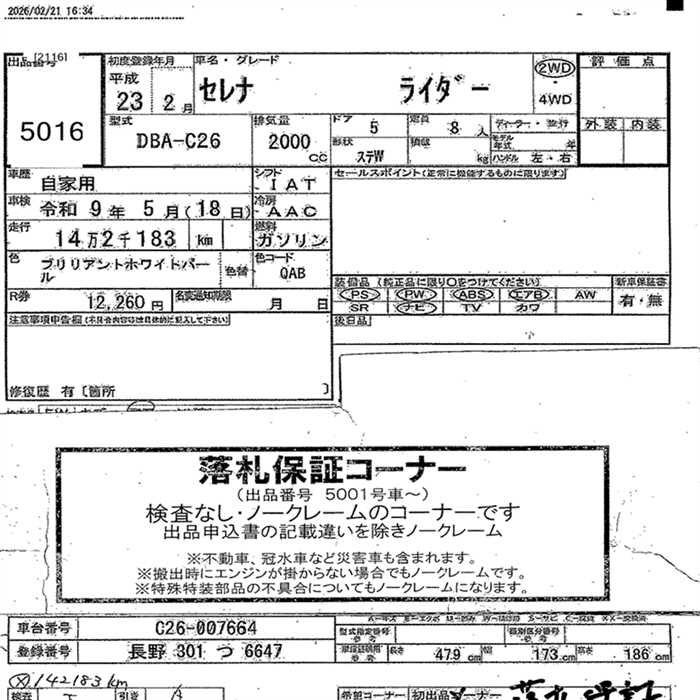 2026/02/21 16:34
出品番号 [2116]
5016
初度登録年月
平成
23 2月
車名・グレード
セレナ ライダー
2WD
・
4WD
評価点
外装 内装
型式
DBA-C26
排気量
2000
cc
ドア 5
定員 8 人
形状 ステW
積載 kg
ディーラー・並行
モデル年式 年
ハンドル 左・右
車歴 自家用
シフト IAT
車検 令和 9年 5月(18日)
冷房 AAC
走行 14万2千183 km
燃料 ガソリン
色 ブリリアントホワイトパール
色替
色コード QAB
R券 12,260円
名変通知期限 月 日
セールスポイント(正常に機能するものに限ります)
装備品(純正品に限り〇をつけてください)
PS PW ABS エアB AW
SR ナビ TV カワ
新車保証書
有・無
後日品
注意事項申告欄(不具合内容等は具体的に記入して下さい)
修復歴 有〔箇所 〕
落札保証コーナー
(出品番号 5001号車～)
検査なし・ノークレームのコーナーです
出品申込書の記載違いを除きノークレーム
※不動車、冠水車など災害車も含まれます。
※搬出時にエンジンが掛からない場合でもノークレームです。
※特殊特装部品の不具合についてもノークレームになります。
車台番号 C26-007664
登録番号 長野 301 つ 6647
型式指定番号 参考
類別区分番号 参考
車検証欄用 参考
長さ 479 cm
幅 173 cm
高さ 186 cm
142183km
希望コーナー
初出品